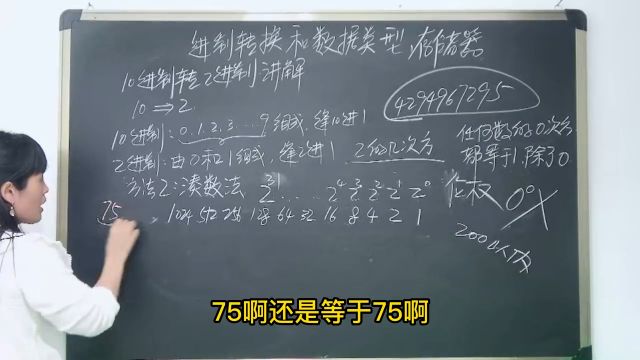 进制转换和数据类型,存储器
10进制转2进制讲解
10⇒2
4294967295
10进制:0.1.2.3...9组成,逢10进1
2进制:由0和1组成,逢2进1 2的几次方
任何数的0次方
都等于1,除了0
方法2:凑数法 2³¹ ..... 2⁴ 2³ 2² 2¹ 2⁰ 位权 0⁰X
75 1024 512 256 128 64 32 16 8 4 2 1
75啊还是等于75啊